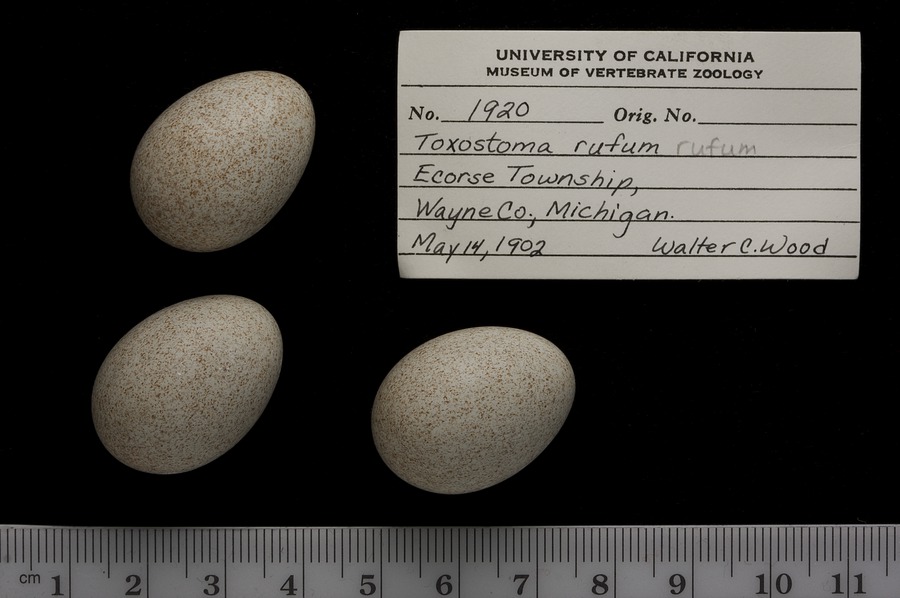 UNIVERSITY OF CALIFORNIA
MUSEUM OF VERTEBRATE ZOOLOGY
No. 1920 Orig. No.
Toxostoma rufum rufum
Ecorse Township,
Wayne Co., Michigan.
May 14, 1902 Walter C. Wood
cm 1 2 3 4 5 6 7 8 9 10 11